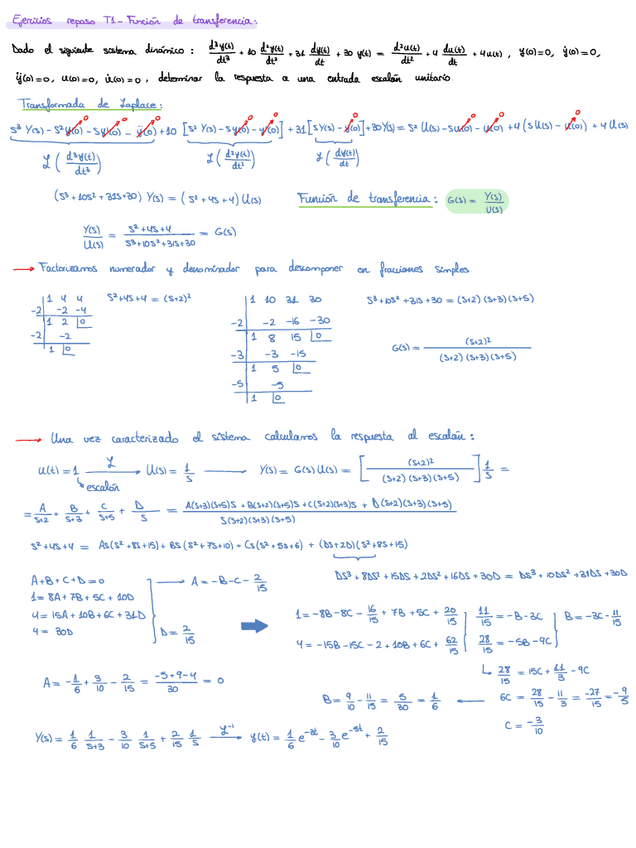 Ejercicios repaso T1 - Función de transferencia:
Dado el siguiente sistema dinámico : d³y(t)/dt³ + 10 d²y(t)/dt² + 31 dy(t)/dt + 30 y(t) = d²u(t)/dt² + 4 du(t)/dt + 4u(t) , y(0)=0, ẏ(0)=0,
ÿ(0)=0, u(0)=0, u̇(0)=0, determinar la respuesta a una entrada escalón unitario.
Transformada de Laplace:
0 0 0 0 0 0 0 0 0
S³ Y(s) - S² y(0) - S ẏ(0) - ÿ(0) + 10 [S² Y(s) - S y(0) - ẏ(0)] + 31 [S Y(s) - y(0)] + 30 Y(s) = S² U(s) - S u(0) - u̇(0) + 4 (S U(s) - u(0)) + 4 U(s)
ℒ (d³y(t)/dt³) ℒ (d²y(t)/dt²) ℒ (dy(t)/dt)
(S³ + 10S² + 31S + 30) Y(s) = (S² + 4S + 4) U(s) Función de transferencia : G(s) = Y(s)/U(s)
Y(s)/U(s) = S² + 4S + 4 / S³ + 10S² + 31S + 30 = G(s)
→ Factorizamos numerador y denominador para descomponer en fracciones simples.
1 4 4 S² + 4S + 4 = (S+2)² 1 10 31 30 S³ + 10S² + 31S + 30 = (S+2) (S+3) (S+5)
-2 -2 -4 -2 -2 -16 -30
1 2 0 1 8 15 0
-2 -2 -3 -3 -15 G(s) = (S+2)² / (S+2) (S+3) (S+5)
1 0 1 5 0
-5 -5
1 0
→ Una vez caracterizado el sistema calculamos la respuesta al escalón :
u(t) = 1 ℒ → U(s) = 1/S → Y(s) = G(s) U(s) = [(S+2)² / (S+2) (S+3) (S+5)] 1/S =
escalón
= A/S+2 + B/S+3 + C/S+5 + D/S = A(S+3)(S+5)S + B(S+2)(S+5)S + C(S+2)(S+3)S + D(S+2)(S+3)(S+5) / S(S+2)(S+3)(S+5)
S² + 4S + 4 = AS(S² + 8S + 15) + BS(S² + 7S + 10) + CS(S² + 5S + 6) + (DS + 2D)(S² + 8S + 15)
DS³ + 8DS² + 15DS + 2DS² + 16DS + 30D = DS³ + 10DS² + 31DS + 30D
A + B + C + D = 0 → A = -B - C - 2/15
1 = 8A + 7B + 5C + 10D
4 = 15A + 10B + 6C + 31D
4 = 30D D = 2/15
1 = -8B - 8C - 16/15 + 7B + 5C + 20/15 11/15 = -B - 3C B = -3C - 11/15
4 = -15B - 15C - 2 + 10B + 6C + 62/15 28/15 = -5B - 9C
28/15 = 15C + 11/3 - 9C
A = -1/6 + 3/10 - 2/15 = -5 + 9 - 4 / 30 = 0
B = 9/10 - 11/15 = 5/30 = 1/6 ← 6C = 28/15 - 11/3 = -27/15 = -9/5
C = -3/10
Y(s) = 1/6 1/S+3 - 3/10 1/S+5 + 2/15 1/S ℒ⁻¹ → y(t) = 1/6 e^-3t - 3/10 e^-5t + 2/15